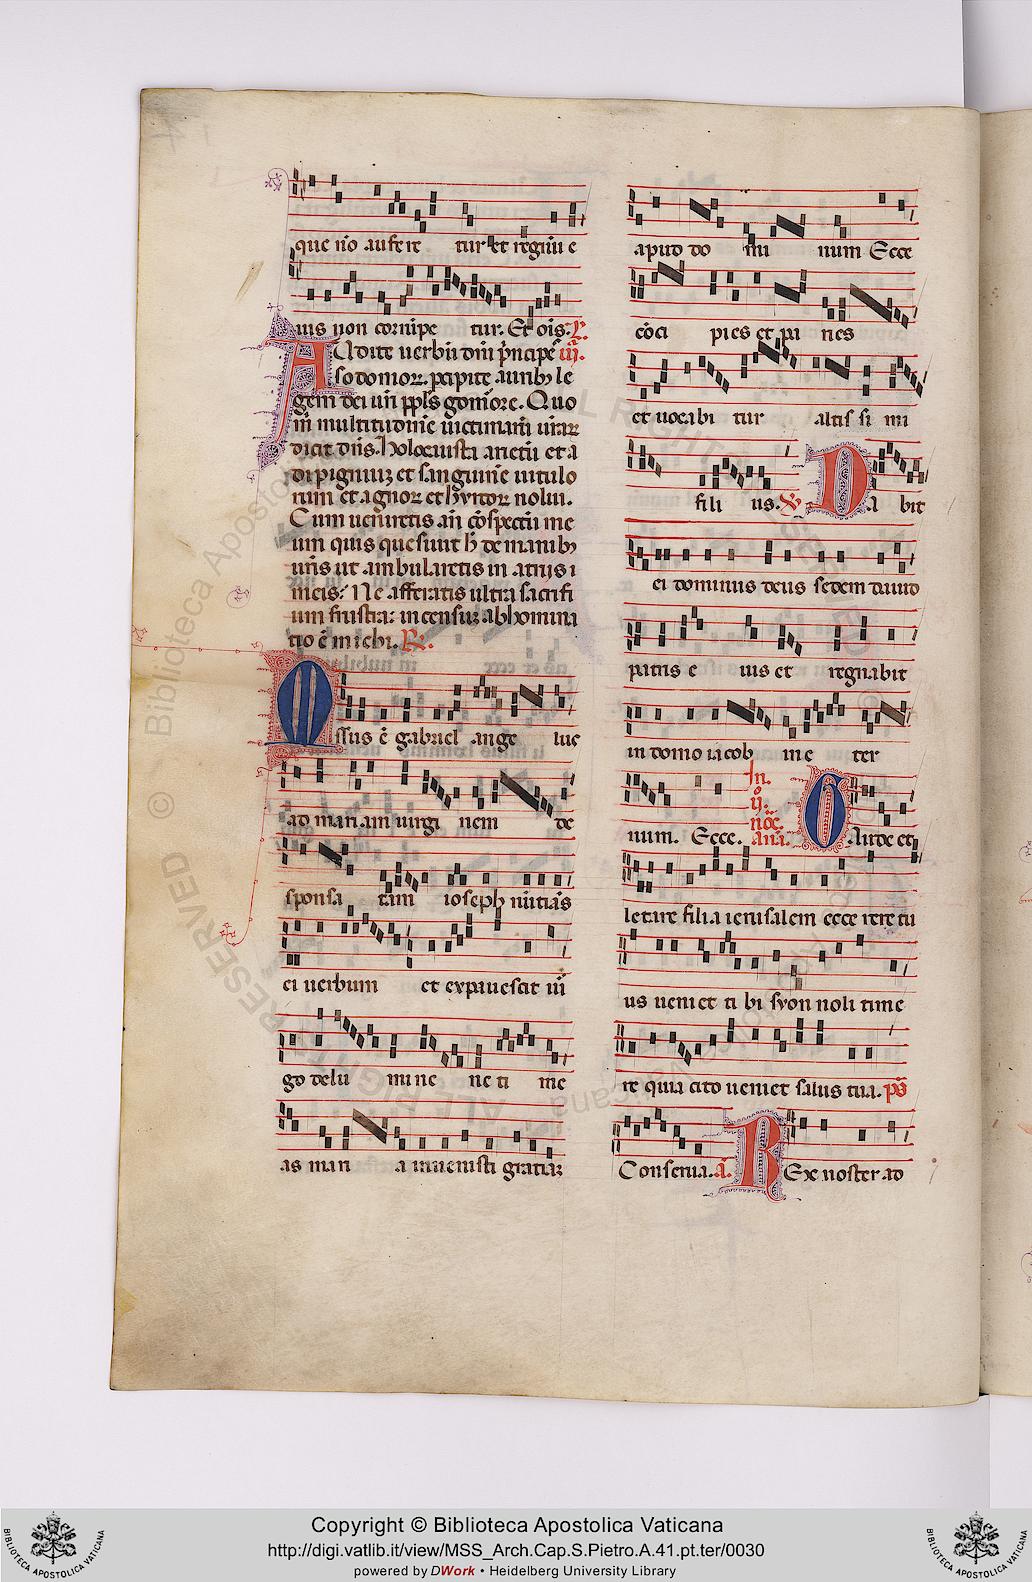 que nō aufere tur et regnū e
ius non corrūpe tur. Et oīs. ℣.
Audite uerbū dn̄i p̄ncipes iij.
sodomoꝝ. percipite auribꝫ le
gem dei ur̄i ppl̄s gomorre. Quo
m̄ multitudinē uictimarū urāꝝ
dicit dn̄s. holocausta arietū et a
dipē pinguiū et sanguinē uitulo
rum et agnoꝝ et hyrcoꝝ nolui.
Cum ueniretis an̄ cōspectū me
um quis quesiuit h̄ de manibꝫ
ur̄is ut ambularetis in atriis
meis? Ne afferatis ultra sacrifi
um frustra: incensuꝫ abhomina
tio ē michi. ℟.
Missus ē gabriel ange lus
ad mariam uirgi nem de
sponsa tam ioseph nūtiās
ei uerbum et expauescit uir
go de lu mi ne ne ti me
as mari a inuenisti gratiaꝫ
apud do mi num Ecce
cōci pies et pa ries
et uocabi tur altis si mi
fili us. ℣. Da bit
ei dominus deus sedem dauid
patris e ius et regnabit
in domo iacob in e ter
num. Ecce. In ij. noc̄. an̄a. Gaude et
letare filia ierusalem ecce rex tu
us ueniet ti bi syon noli time
re quia cito ueniet salus tua. ps̄
Conserua. a. Rex noster ad
Copyright © Biblioteca Apostolica Vaticana
http://digi.vatlib.it/view/MSS_Arch.Cap.S.Pietro.A.41.pt.ter/0030
powered by DWork • Heidelberg University Library
BIBLIOTECA APOSTOLICA VATICANA
BIBLIOTECA APOSTOLICA VATICANA